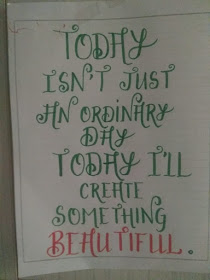 TODAY
ISN'T JUST
AN ORDINARY
DAY
TODAY I'LL
CREATE
SOMETHING
BEAUTIFUL.